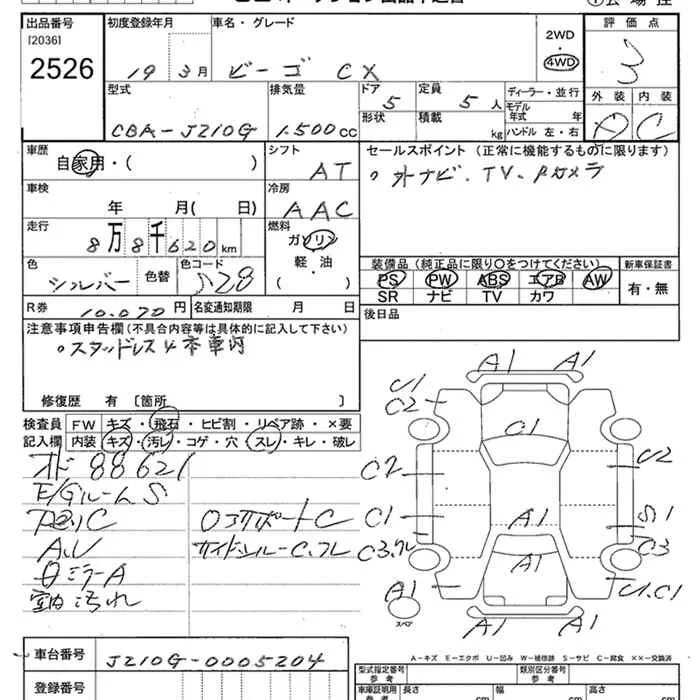 出品番号 初度登録年月 車名・グレード 2WD・4WD 評価点
[2036]
2526 19 3月 ビーゴ CX 3
型式 排気量 ドア 定員 ディーラー・並行 外装 内装
CBA-J210G 1.500cc 5 5人 モデル年式 年 A C
形状 積載 kg ハンドル 左・右
車歴 シフト セールスポイント (正常に機能するものに限ります)
自家用・( ) AT 外ナビ.TV.Bカメラ
車検 冷房
年 月( 日) AAC
走行 燃料
8万8千620km ガソリン
軽・油
( )
色 色替 色コード 装備品(純正品に限り○をつけてください) 新車保証書
シルバー S28 PS PW ABS エアB AW 有・無
SR ナビ TV カワ
R券 10.070円 名変通知期限 月 日 後日品
注意事項申告欄(不具合内容等は具体的に記入して下さい)
スタッドレス4本車内
修復歴 有 [箇所 ]
検査員 FW キズ・飛石・ヒビ割・リペア跡・×要
記入欄 内装 キズ・汚レ・コゲ・穴・スレ・キレ・破レ
オド 88621
E/Gルーム S
下廻リC ロアサポートC
A.U サイドシルーC.フレ
ミラーA
室内汚れ
A1 A1
U1
C2
C1
C2 U2
C1 A1 S1
C3.クレ C3
A1 A1 U1.C1
スペア
A1 A1
A-キズ E-エクボ U-凹み W-補修跡 S-サビ C-腐食 ××-交換済
車台番号 J210G-0005204 型式指定番号 参考 類別区分番号 参考
登録番号 車庫証明用 参考 長さ cm 幅 cm 高さ cm